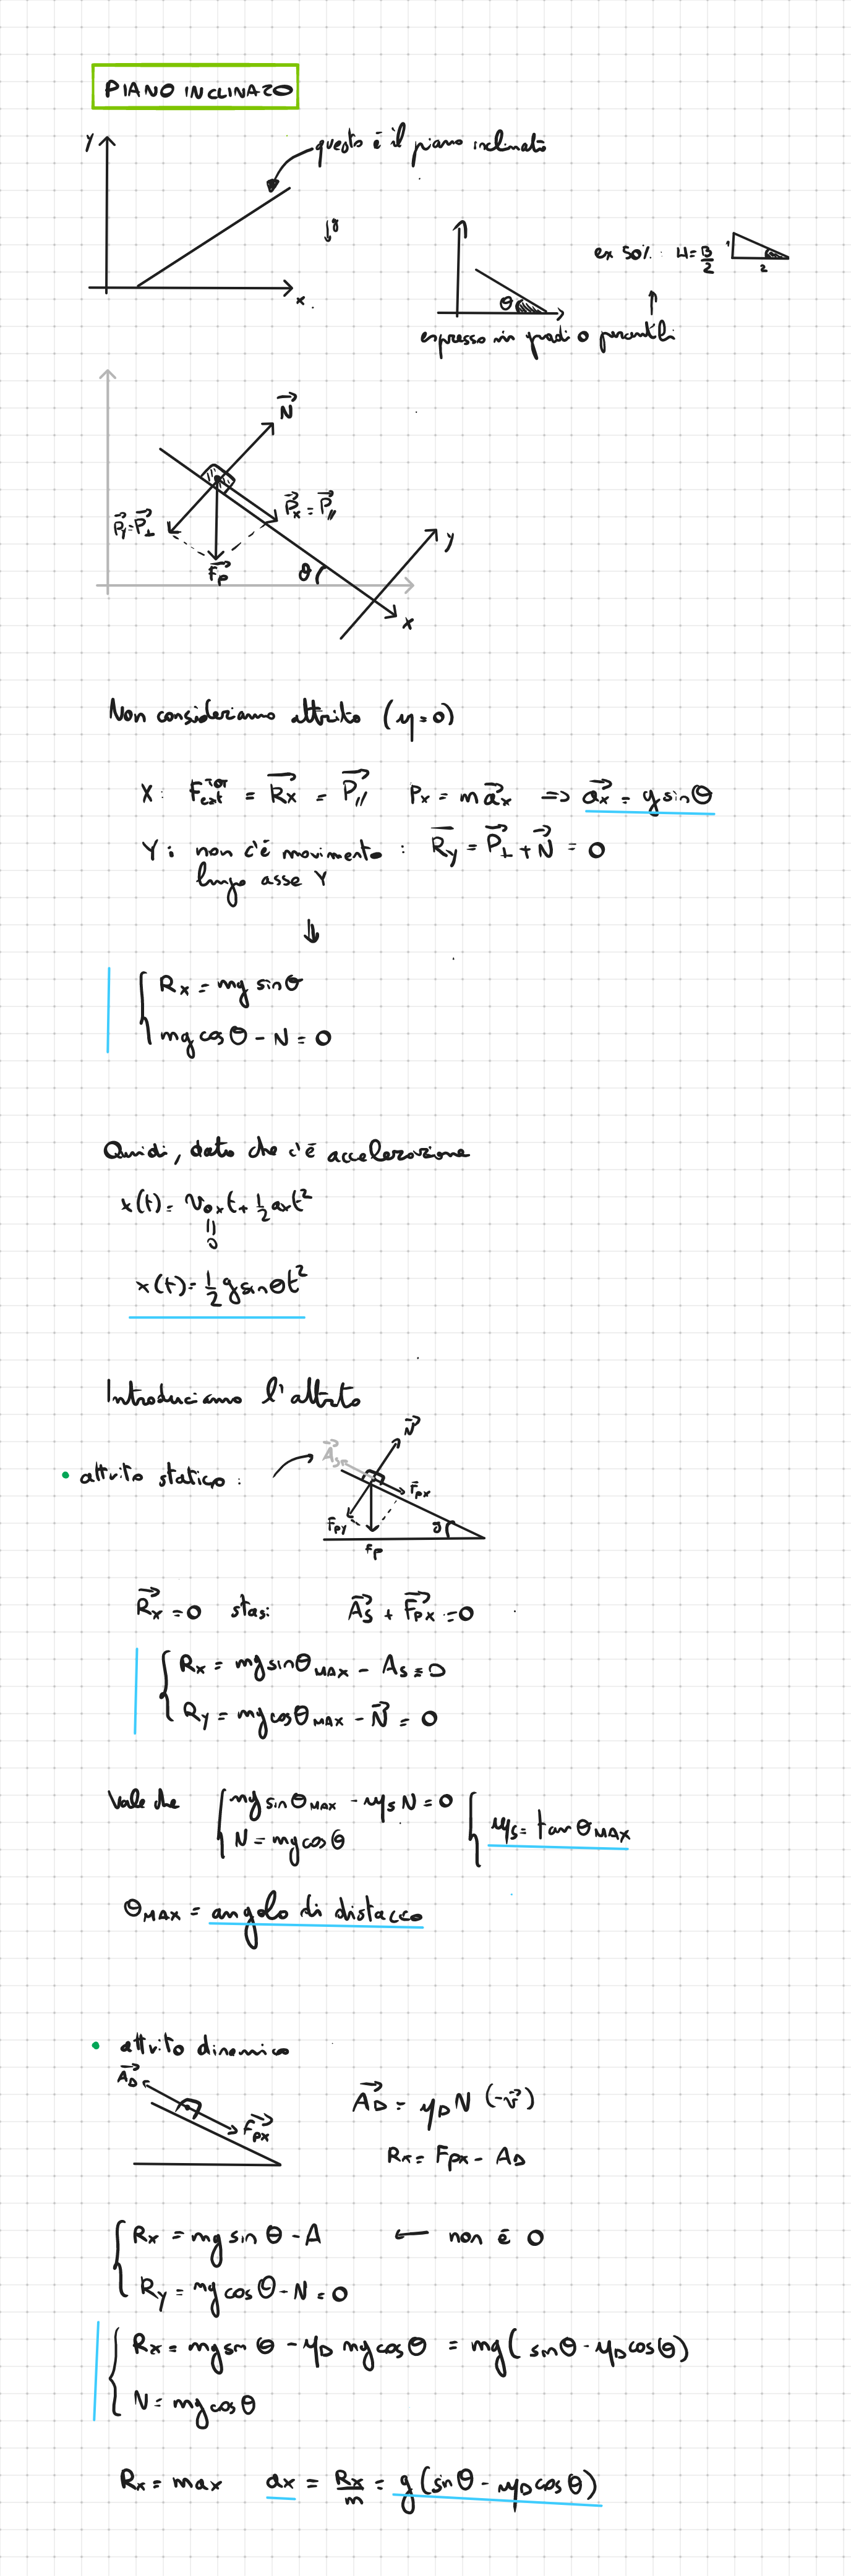 PIANO INCLINATO
y
questo è il piano inclinato
g
x
ex 50%: H = B/2
1
2
θ
espresso in gradi o percentili
N⃗
P⃗y = P⃗⊥
P⃗x = P⃗//
F⃗p
θ
y
x
Non consideriamo attrito (μ=0)
X: Fext^TOT = R⃗x = P⃗// Px = m a⃗x => a⃗x = g sinθ
Y: non c'è movimento : R⃗y = P⃗⊥ + N⃗ = 0
lungo asse Y
↓
{ Rx = mg sinθ
mg cosθ - N = 0
Quidi, dato che c'è accelerazione
x(t) = v0x t + 1/2 ax t²
=
0
x(t) = 1/2 g sinθ t²
Introduciamo l'attrito
• attrito statico:
A⃗s
N⃗
F⃗px
Fpy
Fp
θ
R⃗x = 0 stasi A⃗s + F⃗px = 0
{ Rx = mg sinθMAX - As = 0
Ry = mg cosθMAX - N⃗ = 0
Vale che { mg sinθMAX - μs N = 0 { μs = tan θMAX
N = mg cosθ
θMAX = angolo di distacco
• attrito dinamico
A⃗D
F⃗px
A⃗D = μD N (-v⃗)
Rx = Fpx - AD
{ Rx = mg sin θ - A ← non è 0
Ry = mg cosθ - N = 0
{ Rx = mg sin θ - μD mg cosθ = mg( sinθ - μD cosθ)
N = mg cosθ
Rx = max ax = Rx/m = g(sinθ - μD cosθ)